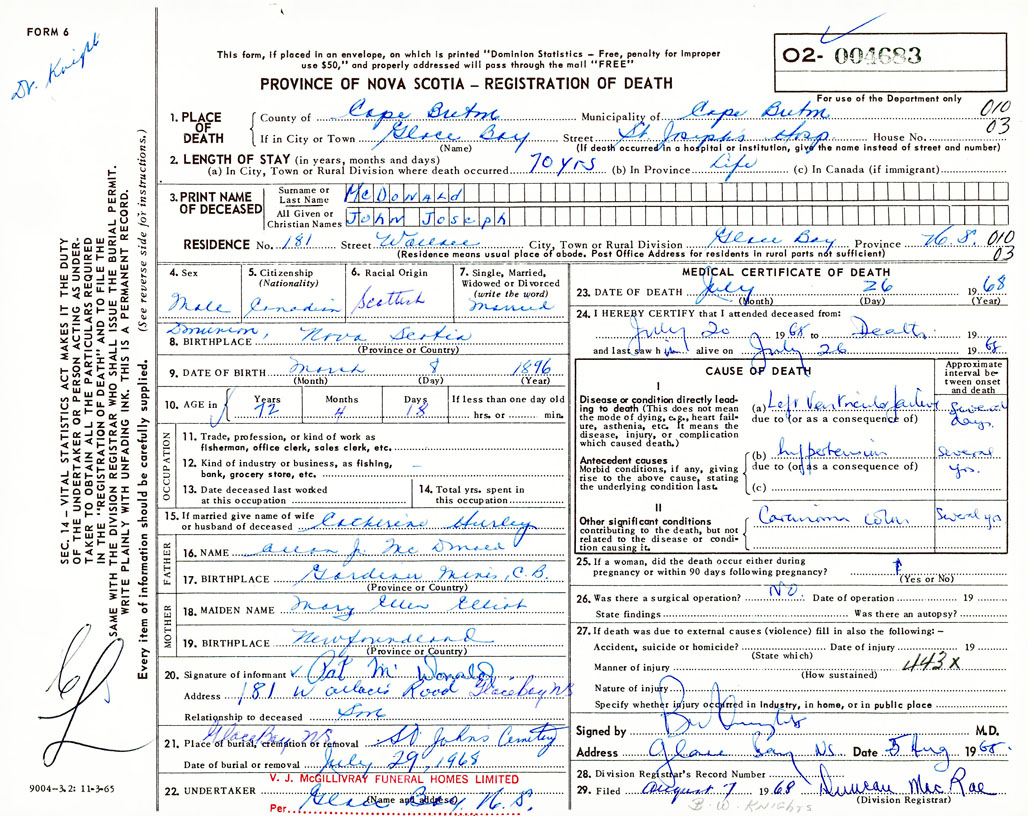 FORM 6
Dr. Knight
This form, if placed in an envelope, on which is printed "Dominion Statistics – Free, penalty for improper
use $50," and properly addressed will pass through the mail "FREE"
PROVINCE OF NOVA SCOTIA – REGISTRATION OF DEATH
O2- 004683
For use of the Department only
010
03
1. PLACE OF DEATH
County of Cape Breton Municipality of Cape Breton
If in City or Town Glace Bay Street St Joseph's Hosp House No.
(Name) (If death occurred in a hospital or institution, give the name instead of street and number)
2. LENGTH OF STAY (in years, months and days)
(a) In City, Town or Rural Division where death occurred 70 yrs (b) In Province Life (c) In Canada (if immigrant)
3. PRINT NAME OF DECEASED
Surname or Last Name McDonald
All Given or Christian Names John Joseph
RESIDENCE No. 181 Street Wallace City, Town or Rural Division Glace Bay Province N.S. 010
03
(Residence means usual place of abode. Post Office Address for residents in rural parts not sufficient)
4. Sex
Male
5. Citizenship
(Nationality)
Canadian
6. Racial Origin
Scottish
7. Single, Married,
Widowed or Divorced
(write the word)
Married
Dominion, Nova Scotia
8. BIRTHPLACE
(Province or Country)
9. DATE OF BIRTH March 8 1896
(Month) (Day) (Year)
10. AGE in
Years Months Days If less than one day old
72 4 18 hrs. or min.
OCCUPATION
11. Trade, profession, or kind of work as
fisherman, office clerk, sales clerk, etc.
12. Kind of industry or business, as fishing, –
bank, grocery store, etc.
13. Date deceased last worked
at this occupation
14. Total yrs. spent in
this occupation
15. If married give name of wife
or husband of deceased Catherine Hurley
FATHER
16. NAME Allan J. McDonald
17. BIRTHPLACE Gardiner Mines, C.B.
(Province or Country)
MOTHER
18. MAIDEN NAME Mary Ellen Elliot
19. BIRTHPLACE Newfoundland
(Province or Country)
20. Signature of informant Pat McDonald
Address 181 Wallace's Road Glace Bay NS
Relationship to deceased Son
Glace Bay NS
21. Place of burial, cremation or removal St Johns Cemetery
Date of burial or removal July 29, 1968
V. J. McGILLIVRAY FUNERAL HOMES LIMITED
22. UNDERTAKER Glace Bay, N.S.
(Name and address)
Per
MEDICAL CERTIFICATE OF DEATH
23. DATE OF DEATH July 26 1968
(Month) (Day) (Year)
24. I HEREBY CERTIFY that I attended deceased from:
July 20 1968 to Death 19
and last saw him alive on July 26 1968
CAUSE OF DEATH
Approximate
interval be-
tween onset
and death
I
Disease or condition directly lead-
ing to death (This does not mean
the mode of dying, e.g., heart fail-
ure, asthenia, etc. It means the
disease, injury, or complication
which caused death.)
(a) Left Ventricular failure
due to (or as a consequence of)
several
days.
Antecedent causes
Morbid conditions, if any, giving
rise to the above cause, stating
the underlying condition last.
(b) hypertension
due to (or as a consequence of)
several
yrs.
(c)
II
Other significant conditions
contributing to the death, but not
related to the disease or condi-
tion causing it.
Carcinoma Colon
Several yrs
25. If a woman, did the death occur either during
pregnancy or within 90 days following pregnancy?
(Yes or No)
26. Was there a surgical operation? NO. Date of operation 19
State findings Was there an autopsy?
27. If death was due to external causes (violence) fill in also the following: –
Accident, suicide or homicide? Date of injury 19
(State which)
Manner of injury 443X
(How sustained)
Nature of injury
Specify whether injury occurred in Industry, in home, or in public place
Signed by M.D.
Address Glace Bay NS. Date 5 Aug 1968
28. Division Registrar's Record Number
29. Filed August 7 1968 Duncan MacRae
(Division Registrar)
B. W. KNIGHTS
SEC. 14 – VITAL STATISTICS ACT MAKES IT THE DUTY
OF THE UNDERTAKER OR PERSON ACTING AS UNDER-
TAKER TO OBTAIN ALL THE PARTICULARS REQUIRED
IN THE "REGISTRATION OF DEATH" AND TO FILE THE
SAME WITH THE DIVISION REGISTRAR WHO SHALL ISSUE THE BURIAL PERMIT.
WRITE PLAINLY WITH UNFADING INK. THIS IS A PERMANENT RECORD.
Every item of information should be carefully supplied. (See reverse side for instructions.)
9004-3.2: 11-3-65